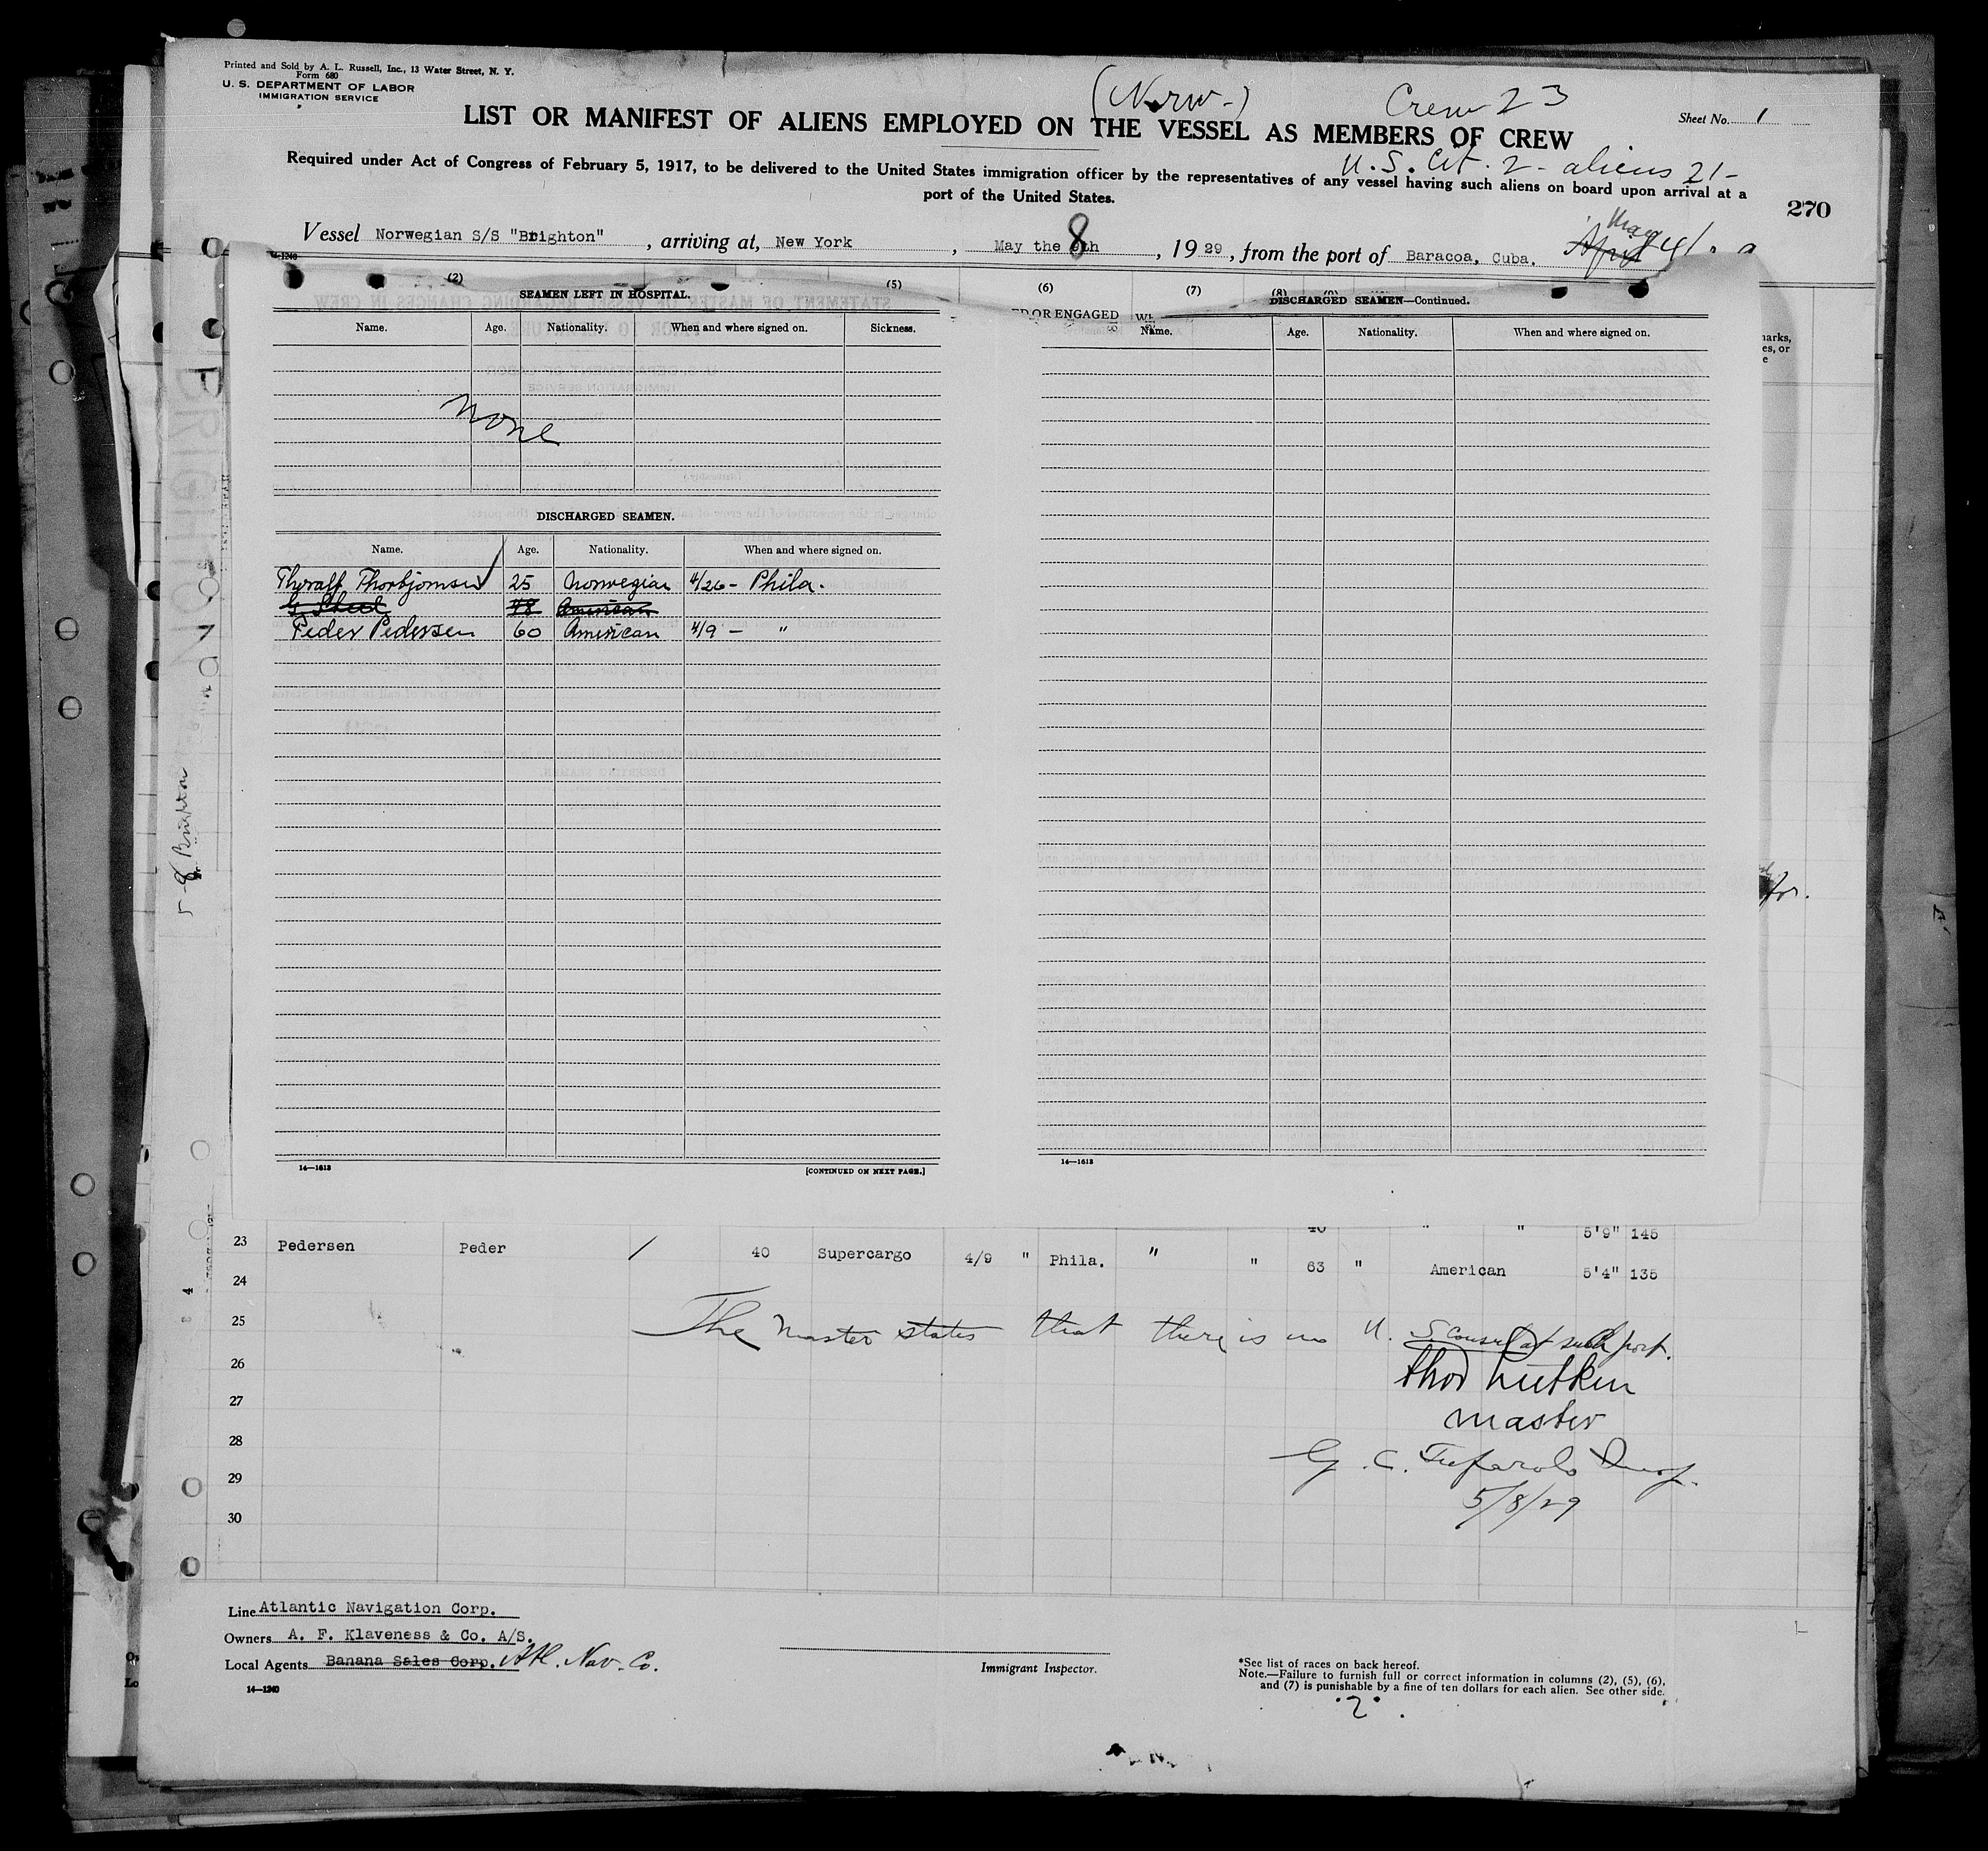 Printed and Sold by A. L. Russell, Inc., 13 Water Street, N. Y.
Form 680
U. S. DEPARTMENT OF LABOR
IMMIGRATION SERVICE
(Norw-)
Crew 23
Sheet No. 1
LIST OR MANIFEST OF ALIENS EMPLOYED ON THE VESSEL AS MEMBERS OF CREW
U. S. Cit. 2 - aliens 21 -
Required under Act of Congress of February 5, 1917, to be delivered to the United States immigration officer by the representatives of any vessel having such aliens on board upon arrival at a
port of the United States.
270
Vessel Norwegian S/S "Brighton", arriving at, New York, May the 8th, 1929, from the port of Baracoa, Cuba.
May
April
(2) (5) (6) (7) (8)
SEAMEN LEFT IN HOSPITAL.
Name. Age. Nationality. When and where signed on. Sickness.
None
DISCHARGED SEAMEN.
Name. Age. Nationality. When and where signed on.
Thoralf Thorbjornsen 25 Norwegian 4/26 - Phila.
G Skeel 48 American
Peder Pedersen 60 American 4/9 - "
14—1613
[CONTINUED ON NEXT PAGE.]
ED OR ENGAGED
DISCHARGED SEAMEN—Continued.
Name. Age. Nationality. When and where signed on.
14—1613
BRIGHTON
5-8 Brighton
40 " " 5'9" 145
23 Pedersen Peder / 40 Supercargo 4/9 " Phila. " " 63 " American 5'4" 135
24
25 The Master states that there is no U. S Consul at such port.
26 Thor Lutken
27 master
28
29 5/8/29
30
Line Atlantic Navigation Corp.
Owners A. F. Klaveness & Co. A/S.
Local Agents Banana Sales Corp. Atl. Nav. Co.
14—1240
Immigrant Inspector.
*See list of races on back hereof.
Note.—Failure to furnish full or correct information in columns (2), (5), (6),
and (7) is punishable by a fine of ten dollars for each alien. See other side.
2